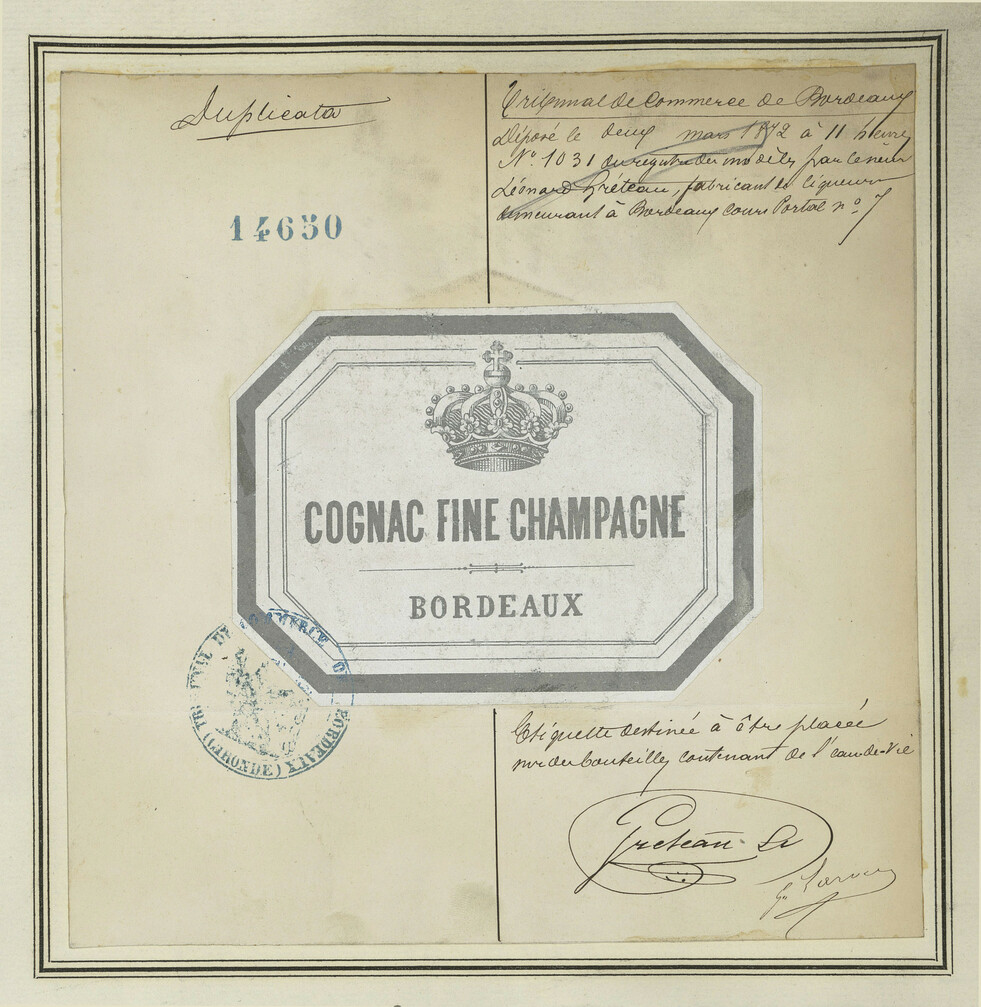 Duplicata
14650
Tribunal de Commerce de Bordeaux
Déposé le deux mars 1872 à 11 heures
No. 1031 du registre des modèles par le sieur
Léonard Gréteau, fabricant de liqueurs
demeurant à Bordeaux cours Portal no 7
COGNAC FINE CHAMPAGNE
BORDEAUX
TRIBUNAL DE COMMERCE DE BORDEAUX (GIRONDE)
Etiquette destinée à être placée
sur des bouteilles contenant de l'eau-de-vie
Greteau